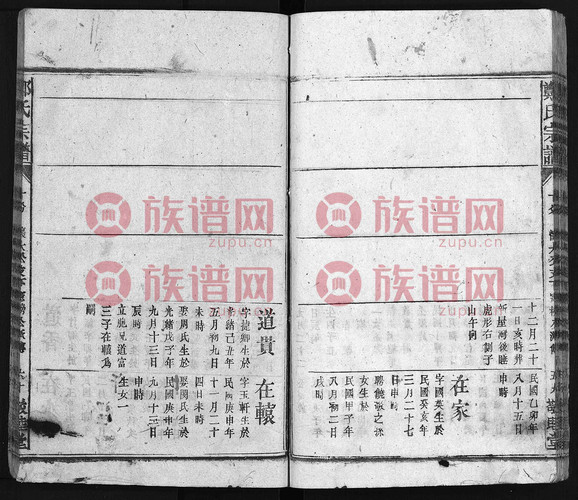 鄭氏宗譜
敬睦堂
十二月二十
一日亥時歿
新屋灣後睡
虎形右割子
山午向
民國乙卯年
八月十五日
申時
在家
字國英生於
民國癸亥年
三月二十七
日申時
女生於
民國甲子年
八月初二日
戌時
道貫
字捷卿生於
光緒己丑年
五月初九日
未時
娶周氏生於
光緒戊子年
九月十三日
辰時
立胞兄道富
三子在轅為
嗣
在轅
字玉軒生於
民國庚申年
十一月二十
四日未時
娶閔氏生於
民國庚申年
九月十三日
申時
生女一
鄭氏宗譜
敬睦堂
族谱网
zupu.cn
族谱网
zupu.cn